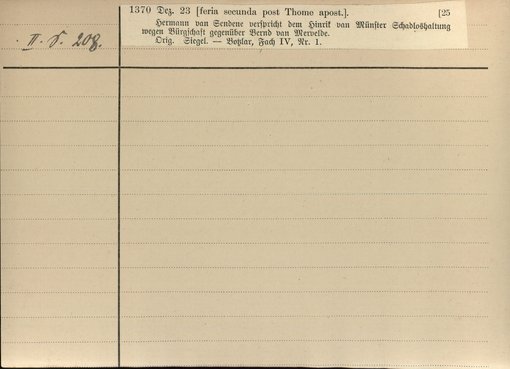 1370 Dez. 23 [feria secunda post Thome apost.]. [25
Hermann van Sendene verspricht dem Hinrik van Münster Schadloßhaltung
wegen Bürgschaft gegenüber Bernd van Mervelde.
Orig. Siegel. — Botzlar, Fach IV, Nr. 1.
II. S. 208.